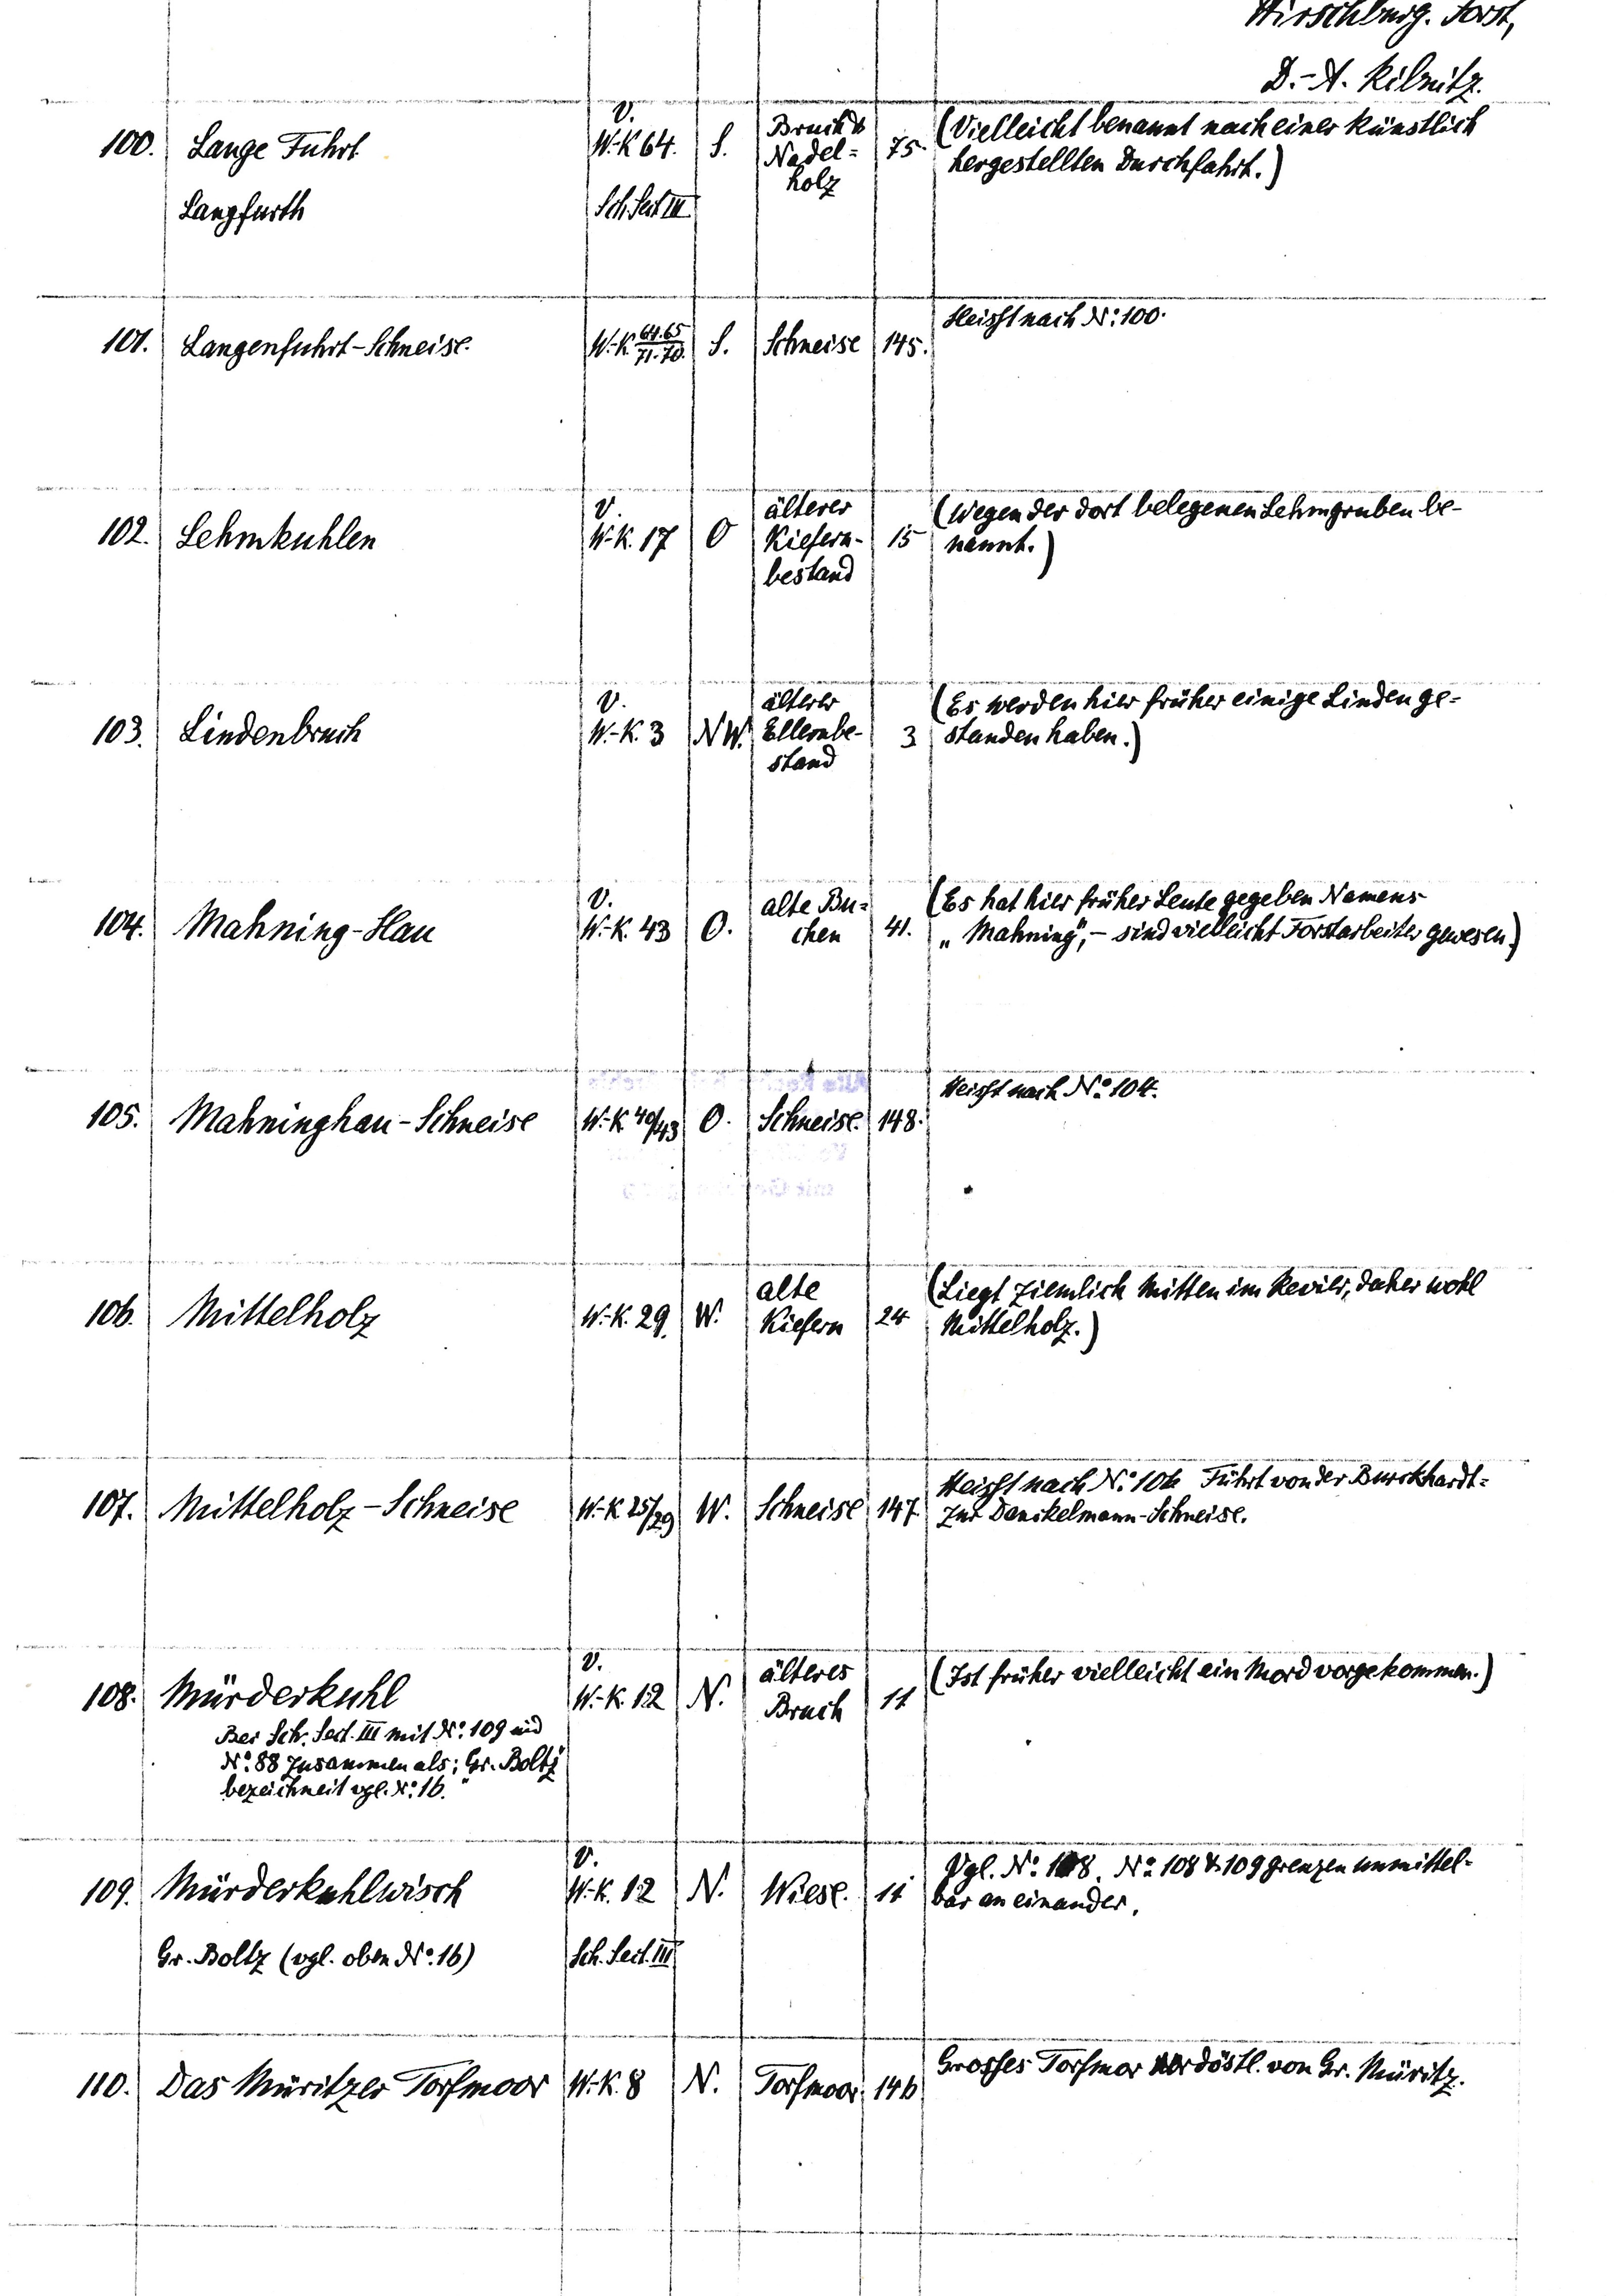 Hirschburg. Forst,
D.-A. Ribnitz.
100. Lange Fuhrt V. W.-K 64. S. Bruch & Nadel= holz 75. (Vielleicht benannt nach einer künstlich
hergestellten Durchfahrt.)
Langfurth Sch. Sect III
101. Langenfuhrt-Schneise. W.-K. 64.65/71.70. S. Schneise 145. Heisst nach No. 100.
102. Lehmkuhlen V. W.-K. 17 O älterer Kiefern- bestand 15 (Wegen der dort belegenen Lehmgruben be-
nannt.)
103. Lindenbruch V. W.-K. 3 NW. älterer Ellernbe- stand 3 (Es werden hier früher einige Linden ge-
standen haben.)
104. Mahning-Hau V. W.-K. 43 O. alte Bu= chen 41. (Es hat hier früher Leute gegeben Namens
„Mahning", – sind vielleicht Forstarbeiter gewesen.)
105. Mahninghau-Schneise W.-K 40/43 O. Schneise. 148. Heisst nach No 104.
106. Mittelholz W.-K. 29. W. alte Kiefern 24 (Liegt ziemlich mitten im Revier, daher wohl
Mittelholz.)
107. Mittelholz-Schneise W.-K 25/29 W. Schneise 147. Heisst nach No. 106 Führt von der Burckhardt=
zur Danckelmann-Schneise.
108. Mürderkuhl V. W.-K. 12 N. älteres Bruch 11 (Ist früher vielleicht ein Mord vorgekommen.)
Bei Sch. Sect. III mit No. 109 und
No. 88 zusammen als: Gr. Boltz"
bezeichnet vgl. No. 16.
109. Mürderkuhlwisch V. W.-K. 12 N. Wiese. 11 Vgl. No. 108. No. 108 & 109 grenzen unmittel-
bar an einander.
Gr. Boltz (vgl. oben No. 16) Sch. Sect. III
110. Das Müritzer Torfmoor W.-K. 8 N. Torfmoor. 146 Grosses Torfmor nordöstl. von Gr. Müritz.